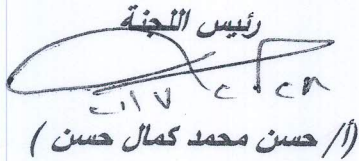 رئيس اللجنة
(أ/ حسن محمد كمال حسن )